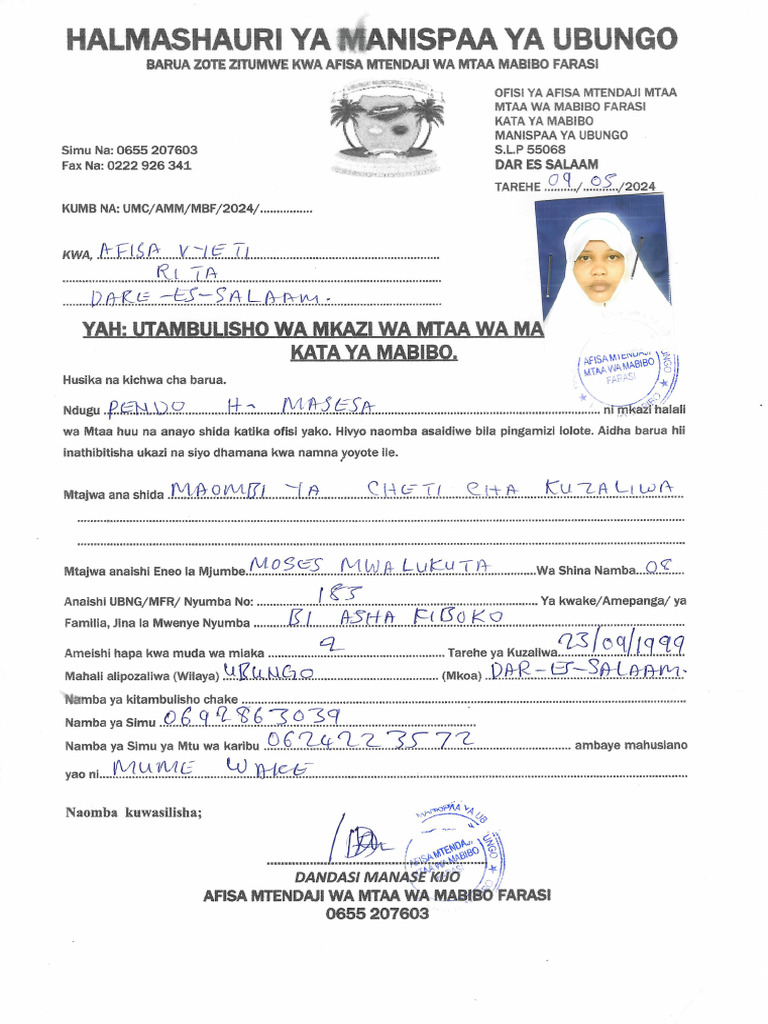 HALMASHAURI YA MANISPAA YA UBUNGO
BARUA ZOTE ZITUMWE KWA AFISA MTENDAJI WA MTAA MABIBO FARASI
OFISI YA AFISA MTENDAJI MTAA
MTAA WA MABIBO FARASI
KATA YA MABIBO
MANISPAA YA UBUNGO
S.L.P 55068
DAR ES SALAAM
TAREHE 09/05/2024
Simu Na: 0655 207603
Fax Na: 0222 926 341
KUMB NA: UMC/AMM/MBF/2024/...............
KWA, AFISA VYETI
RITA
DARE-ES-SALAAM.
YAH: UTAMBULISHO WA MKAZI WA MTAA WA MA
KATA YA MABIBO.
AFISA MTENDAJI
MTAA WA MABIBO
FARASI
Husika na kichwa cha barua.
Ndugu PENDO H- MASESA ni mkazi halali
wa Mtaa huu na anayo shida katika ofisi yako. Hivyo naomba asaidiwe bila pingamizi lolote. Aidha barua hii
inathibitisha ukazi na siyo dhamana kwa namna yoyote ile.
Mtajwa ana shida MAOMBI YA CHETI CHA KUZALIWA
Mtajwa anaishi Eneo la Mjumbe MOSES MWALUKUTA Wa Shina Namba 08
Anaishi UBNG/MFR/ Nyumba No: 183 Ya kwake/Amepanga/ ya
Familia, Jina la Mwenye Nyumba BI ASHA KIBOKO
Ameishi hapa kwa muda wa miaka 9 Tarehe ya Kuzaliwa 23/09/1999
Mahali alipozaliwa (Wilaya) UBUNGO (Mkoa) DAR-ES-SALAAM.
Namba ya kitambulisho chake
Namba ya Simu 0692863039
Namba ya Simu ya Mtu wa karibu 0624223572 ambaye mahusiano
yao ni MUME WAKE
Naomba kuwasilisha;
MANISPAA YA UBUNGO
AFISA MTENDAJI
MTAA WA MABIBO
FARASI
DANDASI MANASE KIJO
AFISA MTENDAJI WA MTAA WA MABIBO FARASI
0655 207603